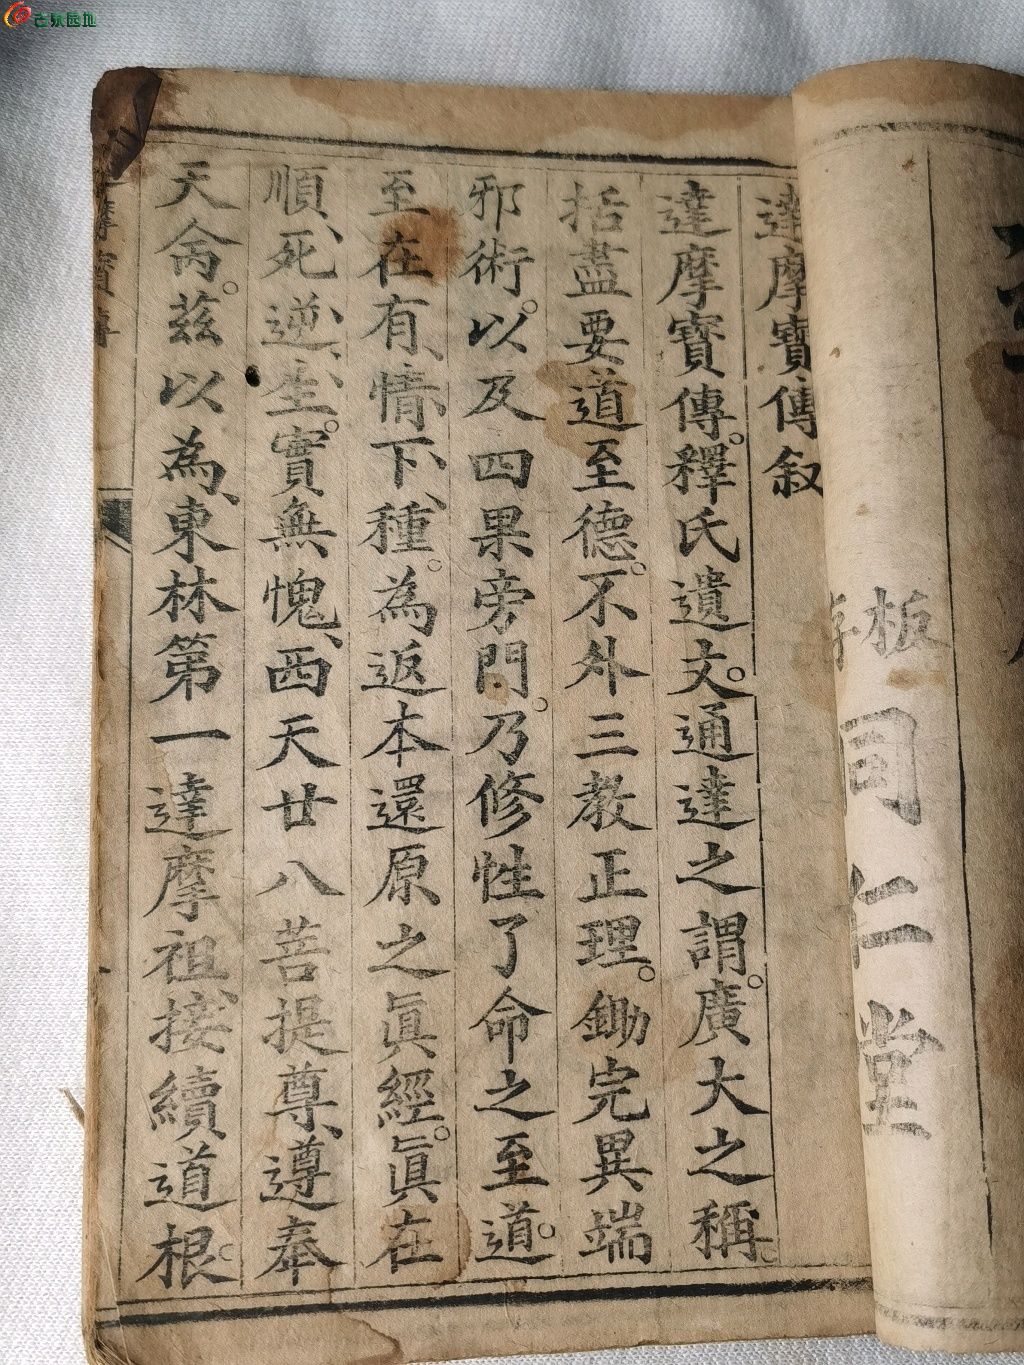 古泉园地
板
同仁堂
達摩寶傳叙
達摩寶傳。釋氏遺文。通達之謂。廣大之稱。
括盡要道至德。不外三教正理。鋤完異端
邪術。以及四果旁門。乃修性了命之至道。
至在有、情、下、種。為返本還原之眞經。眞在
順、死、逆、生。實無愧、西天廿八菩提尊、遵奉
天侖。茲以為、東林第一達摩祖、接續道根。
摩寶傳